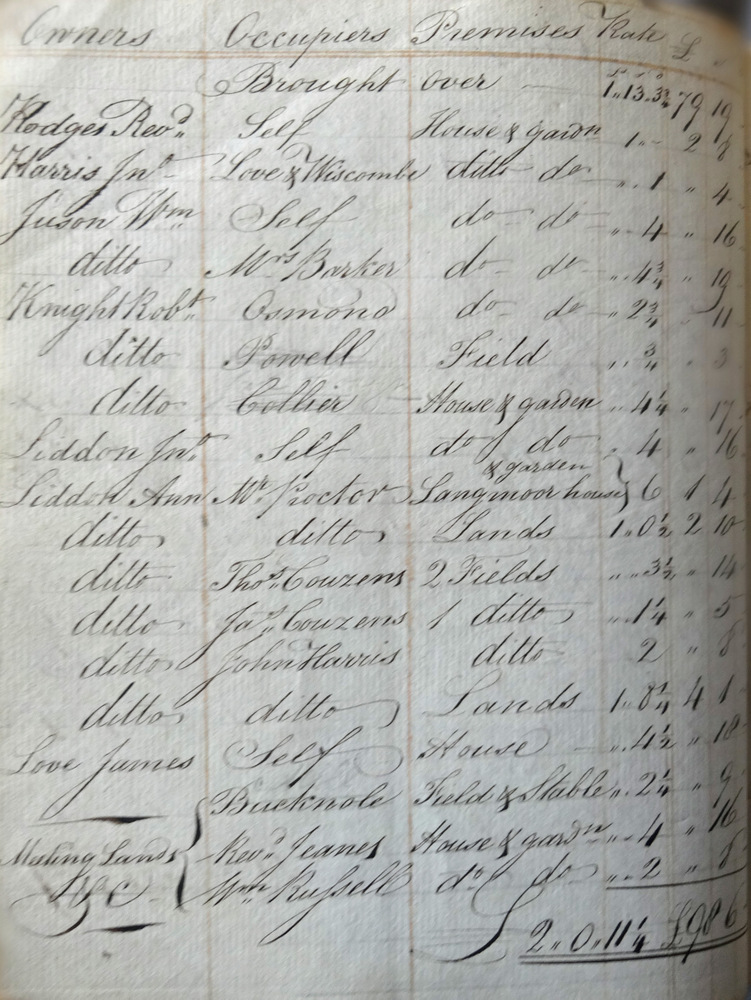 Owners Occupiers Premises Rate £ "
Brought over 1"13"3¾ 79 19
Hodges Revd. Self House & gardn 1"- 2 8
Harris Jno. Love & Wiscombe ditto do " 1 " 4
Juson Wm Self do do " 4 " 16
ditto Mrs Barker do do " 4¾ " 19
Knight Robt. Osmond do do " 2¾ " 11
ditto Powell Field " " ¾ " 3
ditto Collier House & garden " 4¼ " 17
Liddon Jno. Self do do " 4 " 16
& garden
Liddon Ann Mr. Proctor Langmoor house 6 1 4
ditto ditto Lands 1"0½ 2 10
ditto Thos. Couzens 2 Fields " " 3½ " 14
ditto Jas. Couzens 1 ditto " 1¼ " 5
ditto John Harris ditto 2 " 8
ditto ditto Lands 1"8¼ 4 1
Love James Self House " 4½ " 18
Bucknole Field & Stable " 2¼ " 9
Meeting Lands Revd. Jeanes House & gardn " 4 " 16
&c Wm Russell do do " 2 " 8
2"0"11¼ £98 6